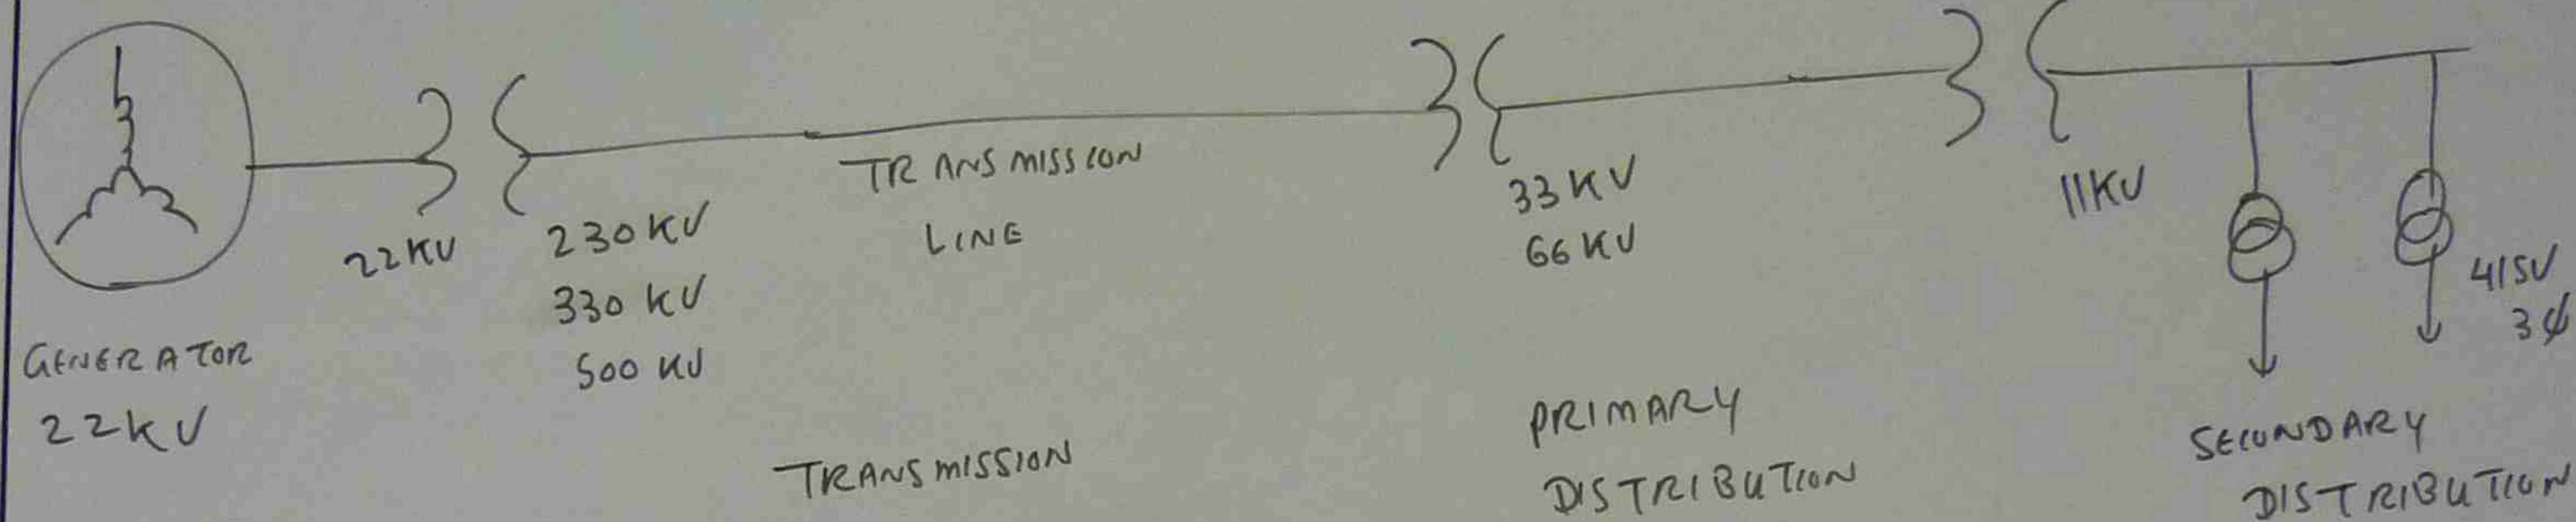 GENERATOR
22kV
22KV
230KV
330 kV
500 KV
TRANSMISSION
LINE
TRANSMISSION
33KV
66KV
PRIMARY
DISTRIBUTION
11KV
415V
3ϕ
SECONDARY
DISTRIBUTION